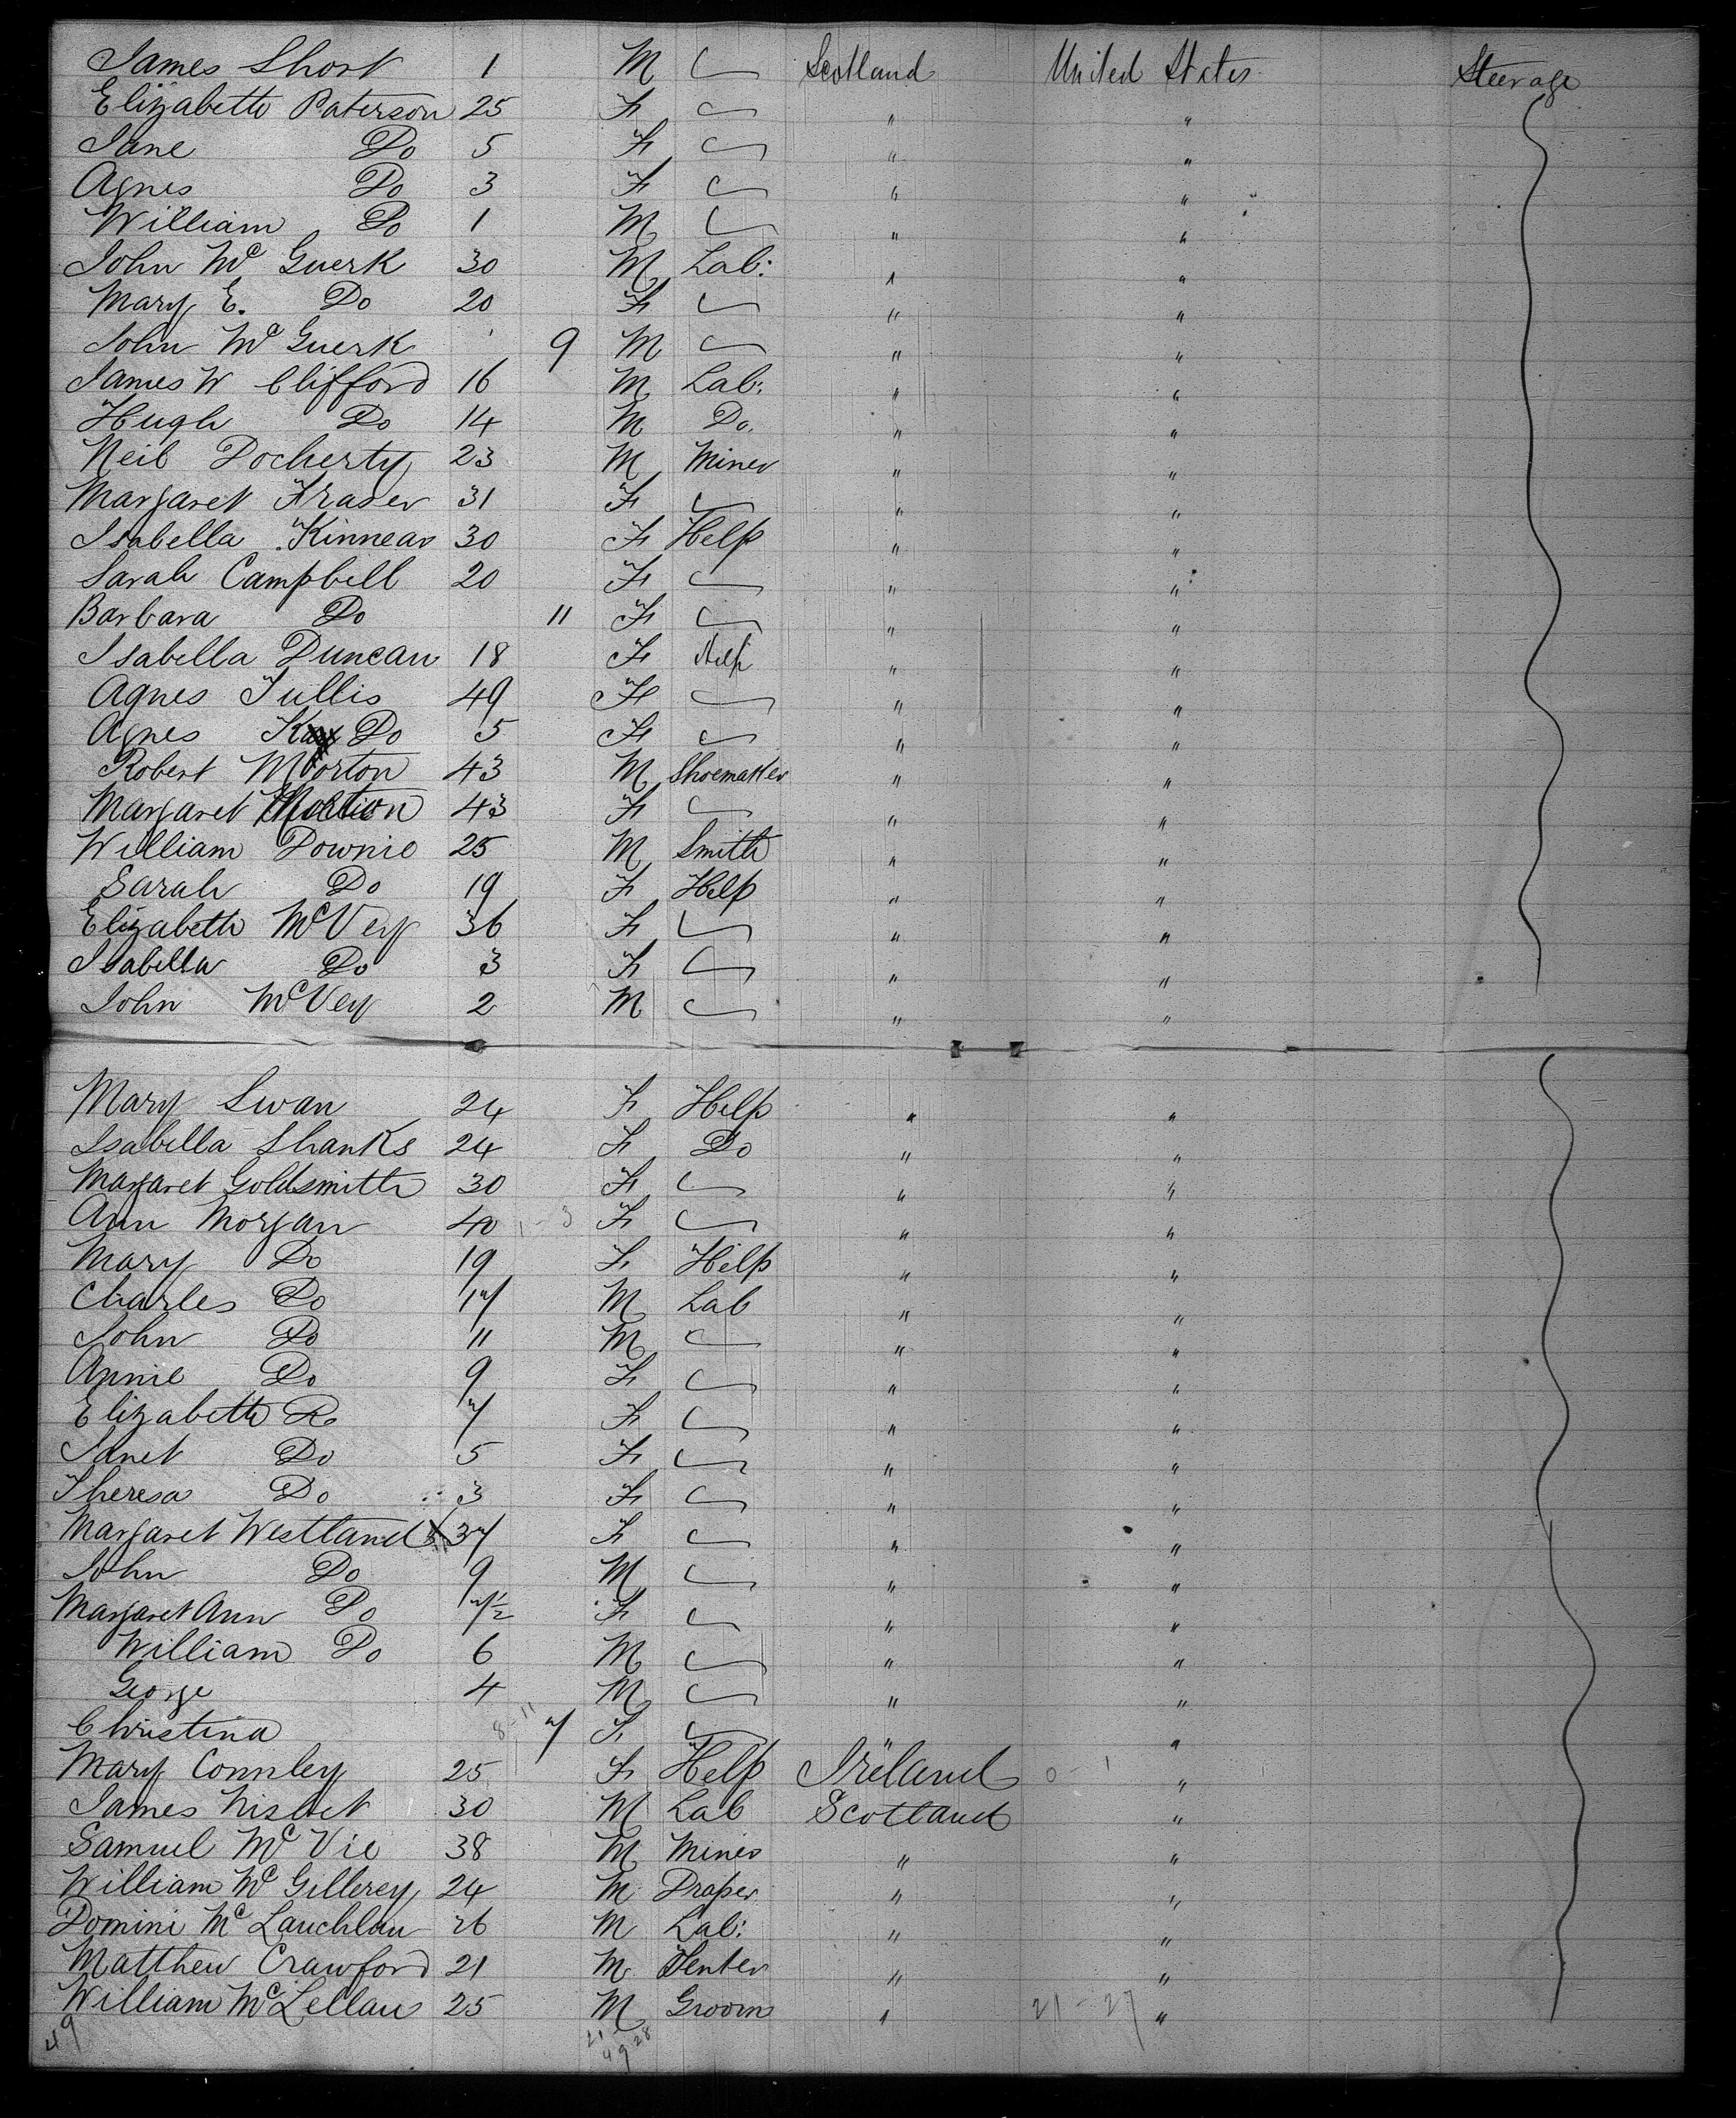 James Short 1 M Scotland United States Steerage
Elizabeth Paterson 25 F " "
Jane Do 5 F " "
Agnes Do 3 F " "
William Do 1 M " "
John Mc Guerk 30 M Lab: " "
Mary E. Do 20 F " "
John Mc Guerk 9 M " "
James W Clifford 16 M Lab: " "
Hugh Do 14 M Do. " "
Neil Docherty 23 M Miner " "
Margaret Fraser 31 F " "
Isabella Kinnear 30 F Help " "
Sarah Campbell 20 F " "
Barbara Do 11 F " "
Isabella Duncan 18 F Help " "
Agnes Tullis 49 F " "
Agnes Do 5 F " "
Robert Morton 43 M Shoemaker " "
Margaret Morton 43 F " "
William Downie 25 M Smith " "
Sarah Do 19 F Help " "
Elizabeth McVey 36 F " "
Isabella Do 3 F " "
John McVey 2 M " "
Mary Swan 24 F Help " "
Isabella Shanks 24 F Do " "
Margaret Goldsmith 30 F " "
Ann Morgan 40 1-3 F " "
Mary Do 19 F Help " "
Charles Do 17 M Lab " "
John Do 11 M " "
Annie Do 9 F " "
Elizabeth Do 7 F " "
Janet Do 5 F " "
Theresa Do 3 F " "
Margaret Westland 37 F " "
John Do 9 M " "
Margaret Ann Do 7½ F " "
William Do 6 M " "
George 4 M " "
Christina 8-11 7 F " "
Mary Connley 25 F Help Ireland 0-1 "
James Nisbet 30 M Lab Scotland "
Samuel Mc Vie 38 M Miner " "
William Mc Gillerey 24 M Draper " "
Domini Mc Lauchlan 26 M Lab: " "
Matthew Crawford 21 M Tenter " "
William McLellan 25 M Groom " 21-27 "
49 21-28
49